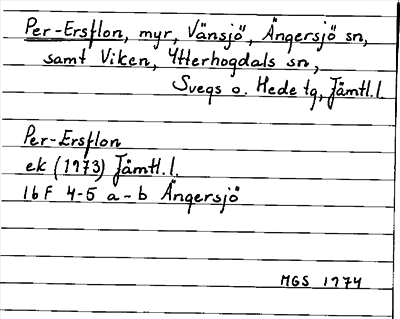 Per-Ersflon, myr, Vänsjö, Ängersjö sn,
samt Viken, Ytterhogdals sn,
Svegs o. Hede tg, Jämtl.l.
Per-Ersflon
ek (1973) Jämtl.l.
16F 4-5 a-b Ängersjö
MGS 1974